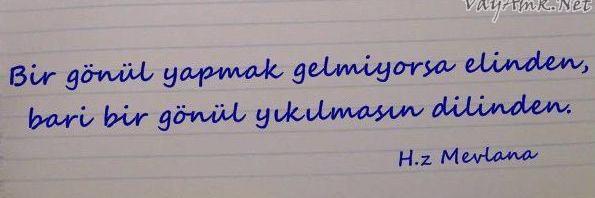 VayAmk.Net
Bir gönül yapmak gelmiyorsa elinden,
bari bir gönül yıkılmasın dilinden.
H.z Mevlana